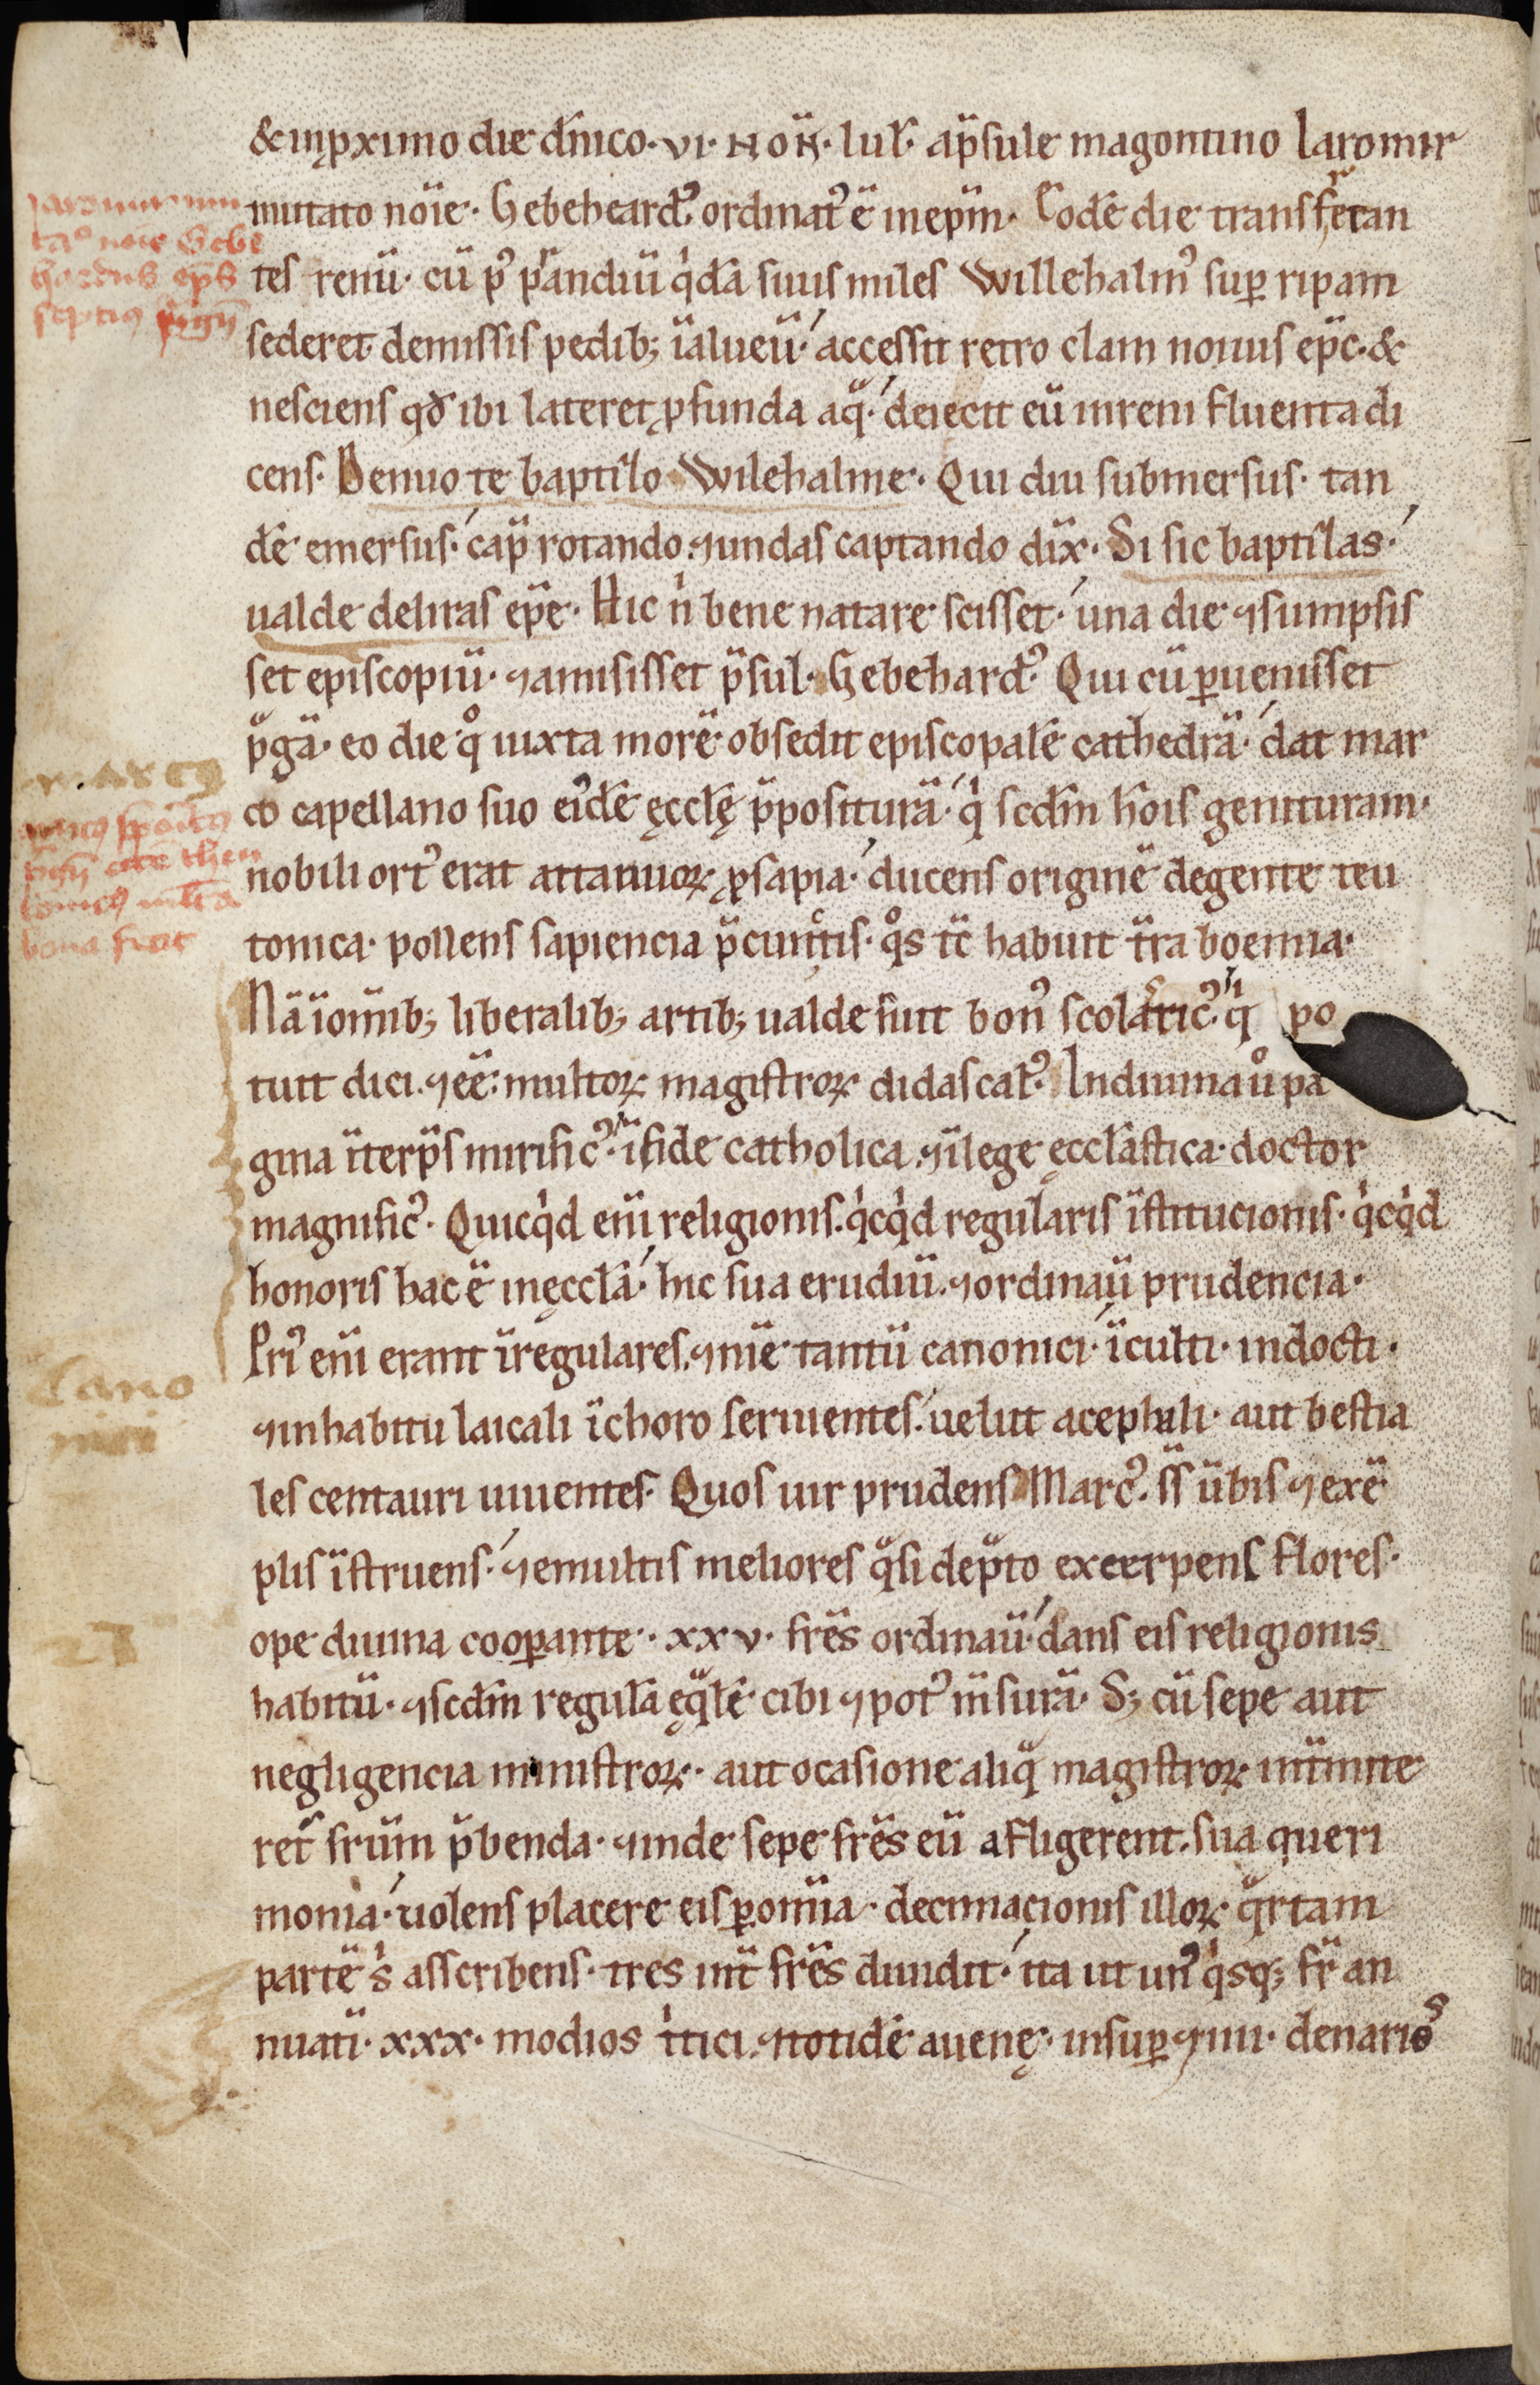 & in ꝓximo die dn̄ico· VI· NOꞤ· Iul̄· ap̄sule magontino Iaromir
mutato noı̄e· Gebeheardꝰ ordinatꝰ ē in ep̄m· Eodē die transfretan
tes renū· cū pꝰ prandiū qͥdā suus miles Willehalmꝰ suꝑ ripam
sederet demissis pedib; ı̄ alueū· accessit retro clam nouus ep̄c· &
nesciens qđ ibi lateret ꝓfunda aqͣ· deiecit eū in reni fluenta di
cens· Denuo te baptiſo Wilehalme· Qui diu submersus· tan
dē emersus· cap̄ rotando· ⁊ undas captando dix̄· Si sic baptiſas·
ualde deliras ep̄e· Hic nͥ bene natare scisset· una die ꝯsumpsis
set episcopiū· ⁊ amisisset p̄sul· Gebehardꝰ Qui cū ꝑuenisset
pͣgā· eo die qͦ iuxta morē obsedit episcopalē cathedrā· dat mar
co capellano suo eiꝰdē ęcclę p̄posituram· qͥ scd̄m hōis genituram·
nobili ortꝰ erat attauuoꝝ ꝓsapia· ducens originē de gente teu
tonica· pollens sapiencia p̄ cunctis· qͦs tc̄ habuit tr̄a boemia·
Nā ı̄ om̄ib; liberalib; artib; ualde fuit bonꝰ scolasticꝰ· qͥ po
tuit dici· ⁊ eē· multoꝝ magistroꝝ didascalꝰ· In diuina uͦ pa
gina ı̄terp̄s mirificꝰ· ı̄ fide catholica· ⁊ ı̄ lege ęccl̄astica· doctor
magnificꝰ· Quicqͥd eni religionis· qͥcqͥd regularis ı̄stitucionis· qͥcqͥd
honoris hac ē in ęcclā· hic sua erudiū· ⁊ ordinaū prudencia·
Priꝰ eni erant ı̄regulares· ⁊ nı̄e tantū canonici· ı̄culti· indocti·
⁊ in habitu laicali ı̄ choro seruientes· uelut acephali· aut bestia
les centauri uiuentes· Quos uir prudens Marcꝰ· ss̄ ūbis ⁊ exē
plis ı̄struens· ⁊ e multis meliores qͣsi de pͣto excerpens flores·
ope diuina cooꝑante· xxv· fr̄es ordinaū· dans eis religionis
habitū· ⁊ scd̄m regulā ęqͣlē cibi ⁊ potꝰ m̄surā· S; cū sepe aut
negligencia ministroꝝ· aut ocasione aliqͣ magistroꝝ int̄mitte
ret fr̄um p̄benda· ⁊ inde sepe fr̄es eū afligerent· sua queri
monia· uolens placere eis ꝑ om̄ia· decimacionis illoꝝ qͣrtam
partē sͥ asscribens· tres int̄ fr̄es diuidit· ita ut unꝰ qͥsq; fr̄ an
nuatī· xxx· modios tͥtici· ⁊ totidē auenę· insuꝑ ⁊ IIII· denarios
mutato noı̄e Gebe
hardus ep̄s
Cano
nici
25